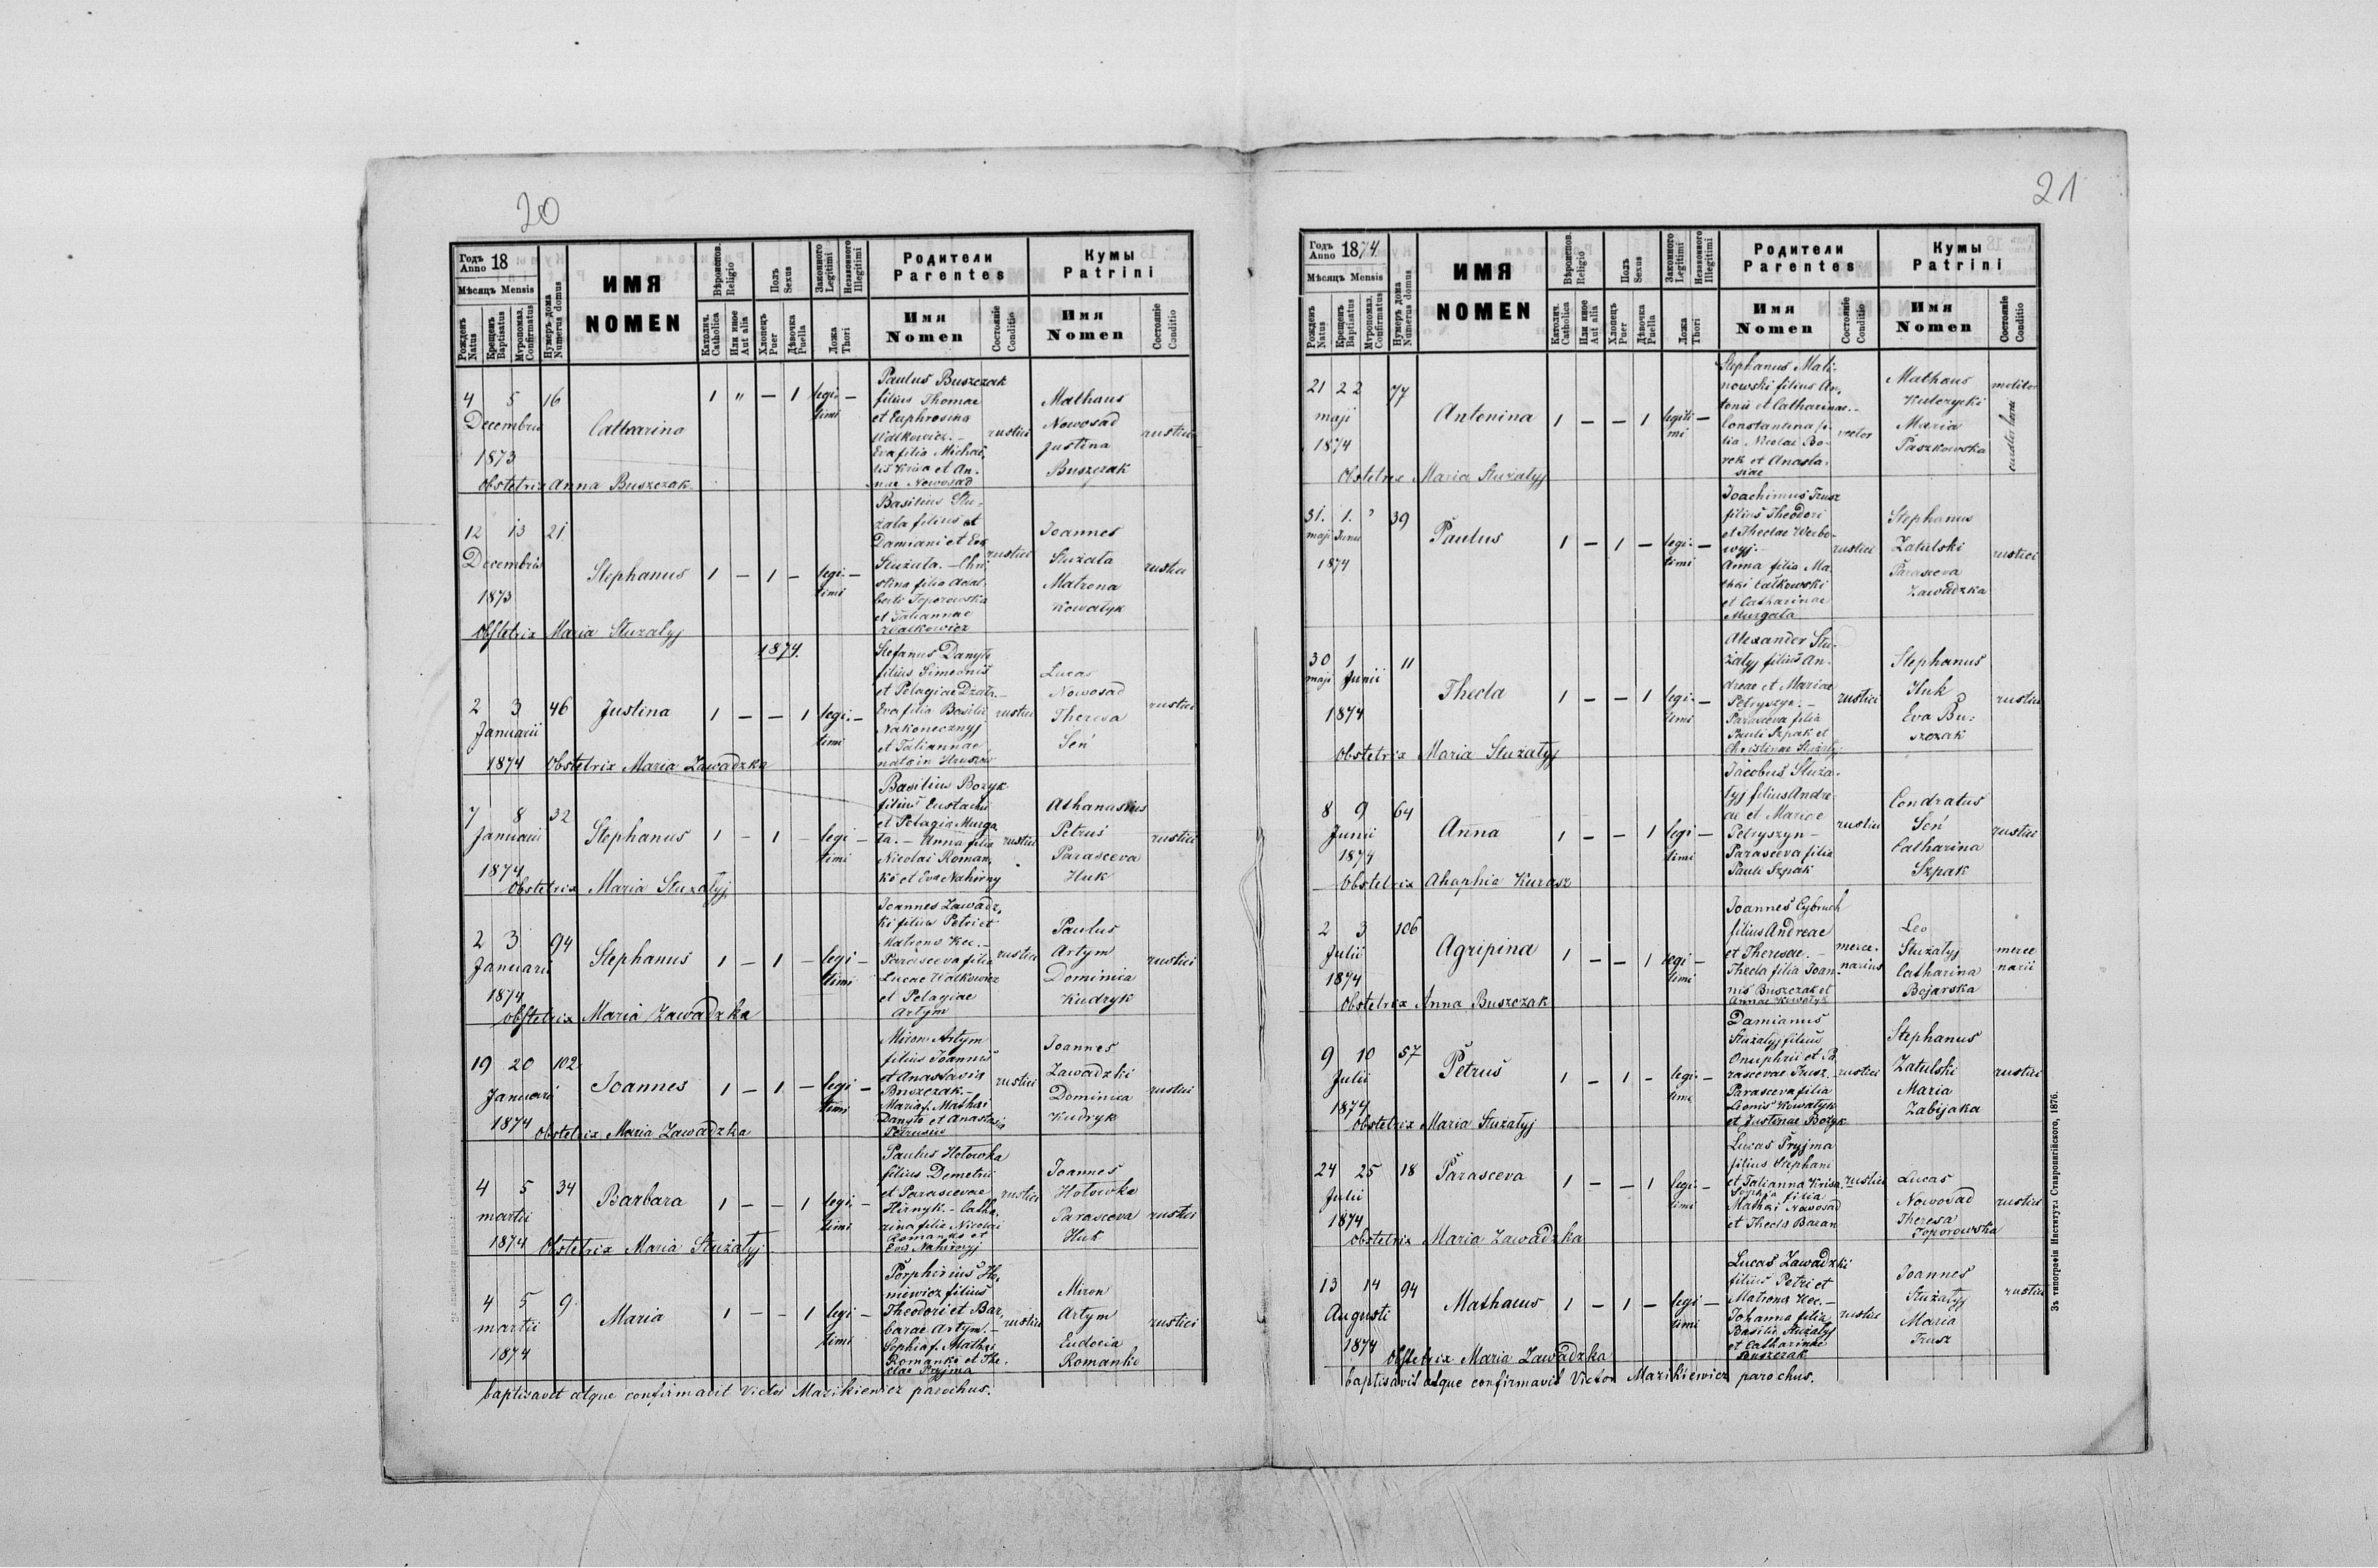 20
Годъ Anno 18
Мѣсяцъ Mensis
Рожденъ Natus
Крещенъ Baptisatus
Муропомаз. Confirmatus
Нумеръ дома Numerus domus
ИМЯ
NOMEN
Вѣроиспов. Religio
Католич. Catholica
Или иное Aut alia
Полъ Sexus
Хлопецъ Puer
Дѣвочка Puella
Законного Legitimi
Незаконного Illegitimi
Ложа Thori
Родители
Parentes
Имя
Nomen
Состояніе Conditio
Кумы
Patrini
Имя
Nomen
Состояніе Conditio
4 5 16
Decembris
1873
Catharina
1 " — 1 legi- —
timi
Paulus Buszczak
filius Thomae
et Euphrosina
Walkowicz. –
Eva filia Michae-
lis Krisa et An-
nae Nowosad
rustici
Mathaus
Nowosad
Justina
Buszczak
rustici
Obstetrix Anna Buszczak
12 13 21
Decembris
1873
Stephanus
1 — 1 — legi- —
timi
Basilius Stu-
żata filius et
Damiani et Eva
Stużata. – Chri
stina filia Adal
berti Toporowska
et Tatiannae
Walkowicz
rustici
Joannes
Stużata
Matrona
Kowałyk
rustici
Obstetrix Maria Stużatyj
1874.
2 3 46
Januarii
1874
Justina
1 — — 1 legi- —
timi
Stefanus Danyło
filius Simeonis
et Pelagiae
Eva filia Basilii
Nakonecznyj
et Tatiannae
nato in Hruszow
rustici
Lucas
Nowosad
Theresa
Seń
rustici
Obstetrix Maria Zawadzka
7 8 32
Januarii
1874
Stephanus
1 — 1 — legi —
timi
Basilius Bozyk
filius Eustachii
et Pelagia Murga
ta. – Anna filia
Nicolai Roman-
ko et Eva Nahirny
rustici
Athanasius
Petruś
Parasceva
Huk
rustici
Obstetrix Maria Stużatyj
2 3 94
Januarii
1874
Stephanus
1 — 1 — legi —
timi
Joannes Zawadz-
ki filius Petri et
Matrona Kec. –
Parasceva filia
Lucae Walkowicz
et Pelagiae
Artym
rustici
Paulus
Artym
Dominica
Kudryk
rustici
Obstetrix Maria Zawadzka
19 20 102
Januari
1874
Joannes
1 — 1 — legi —
timi
Miron Artym
filius Joannis
et Anastasia
Buszczak. –
Maria f. Mathai
Danyło et Anastasia
rustici
Joannes
Zawadzki
Dominica
Kudryk
rustici
Obstetrix Maria Zawadzka
4 5 34
martii
1874
Barbara
1 — — 1 legi- —
timi
Paulus Hołowka
filius Demetrii
et Parascevae
Hirnyk. – Catha-
rina filia Nicolai
Romanko et
Eva Nahirnyj
rustici
Joannes
Hołowka
Parasceva
Huk
rustici
Obstetrix Maria Stużatyj
4 5 9
martii
1874
Maria
1 — — 1 legi —
timi
Porphirius He-
niewicz filius
Theodori et Bar-
barae Artym. –
Sophia f. Mathai
Romanko et The-
clae Pryjma
rustici
Miron
Artym
Eudocia
Romanko
rustici
baptisavit atque confirmavit Victor Mazikiewicz parochus.
21
Годъ Anno 1874
Мѣсяцъ Mensis
Рожденъ Natus
Крещенъ Baptisatus
Муропомаз. Confirmatus
Нумеръ дома Numerus domus
ИМЯ
NOMEN
Вѣроиспов. Religio
Католич. Catholica
Или иное Aut alia
Полъ Sexus
Хлопецъ Puer
Дѣвочка Puella
Законного Legitimi
Незаконного Illegitimi
Ложа Thori
Родители
Parentes
Имя
Nomen
Состояніе Conditio
Кумы
Patrini
Имя
Nomen
Состояніе Conditio
21 22 77
maji
1874
Antonina
1 — — 1 legiti —
mi
Stephanus Mali-
nowski filius An-
tonii et Catharinae. –
Constantina fi-
lia Nicolai Bo-
rek et Anasta-
siae
Mathaus
Kulczycki
Maria
Paszkowska
molitor
Obstetrix Maria Stużatyj
31. 1. 39
maji Junii
1874
Paulus
1 — 1 — legi- —
timi
Joachimus Trusz
filius Theodori
et Theclae Werbo-
wyj. –
Anna filia Ma-
thai Całkowski
et Catharinae
Murgata
rustici
Stephanus
Zatulski
Parasceva
Zawadzka
rustici
30 1 11
maji Junii
1874
Thecla
1 — — 1 legi- —
timi
Alexander Stu-
żatyj filius An-
dreae et Mariae
Petryszyn. –
Parasceva filia
Pauli Szpak et
Christinae Stużatyj
rustici
Stephanus
Huk
Eva Bu-
szczak
rustici
Obstetrix Maria Stużatyj
8 9 64
Junii
1874
Anna
1 — — 1 legi —
timi
Jacobus Stuża-
tyj filius Andre-
ae et Mariae
Petryszyn –
Parasceva filia
Pauli Szpak
rustici
Condratus
Seń
Catharina
Szpak
rustici
Obstetrix Ahaphia Kurasz
2 3 106
Julii
1874
Agripina
1 — — 1 legi —
timi
Joannes Cybruch
filius Andreae
et Theresae. –
Thecla filia Joan-
nis Buszczak et
Annae Kowałyk
merce-
narius
Leo
Stużatyj
Catharina
Bojarska
merce
narii
Obstetrix Anna Buszczak
9 10 57
Julii
1874
Petrus
1 — 1 — legi- —
timi
Damianus
Stużatyj filius
Onuphrii et Pa-
rascevae Trusz. –
Parasceva filia
Leonis Kowałyk
et Justinae Bozyk
rustici
Stephanus
Zatulski
Maria
Zabijaka
rustici
Obstetrix Maria Stużatyj
24 25 18
Julii
1874
Parasceva
1 — — 1 legi- —
timi
Lucas Pryjma
filius Stephani
et Tatianna Krisa
Sophia filia
Mathai Nowosad
et Thecla Baran
rustici
Lucas
Nowosad
Theresa
Toporowska
rustici
Obstetrix Maria Zawadzka
13 14 94
Augusti
1874
Mathaeus
1 — 1 — legi —
timi
Lucas Zawadzki
filius Petri et
Matrona Kec. –
Johanna filia
Basilii Stużatyj
et Catharinae
Buszczak
rustici
Joannes
Stużatyj
Maria
Trusz
rustici
Obstetrix Maria Zawadzka
baptisavit atque confirmavit Victor Mazikiewicz parochus.
Зъ типографіи Института Ставропигійского, 1876.